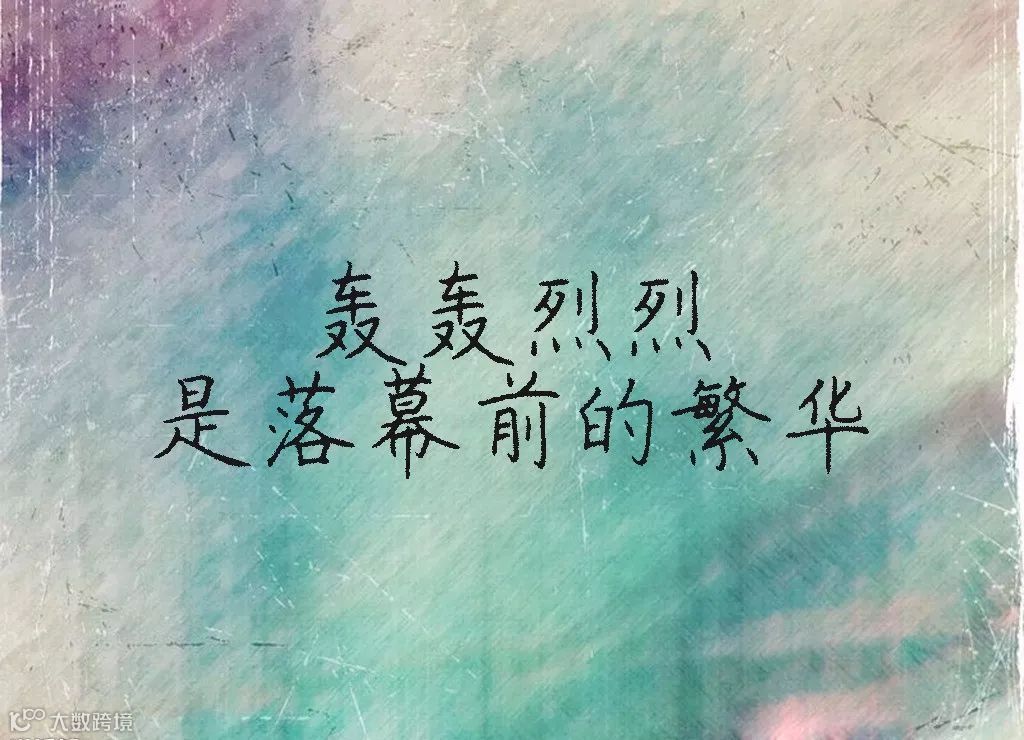 轰轰烈烈
是落幕前的繁华
大数跨境